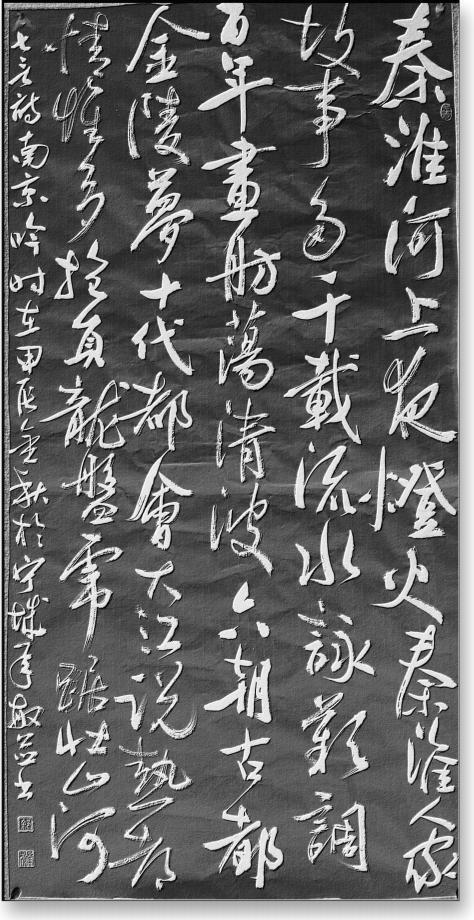 秦淮河上夜燈火秦淮人家
故事多千載流水詠歎調
百年畫舫蕩清波六朝古都
金陵夢十代都會大江說熱
情多抱負龍盤虎踞壯山河
七言詩南京吟時在甲辰金秋於宁城書